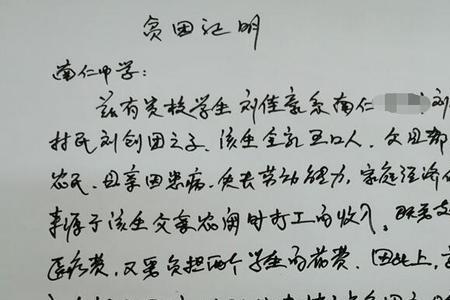 贫困证明
南仁中学：
兹有贵校学生刘佳豪系南仁刘
村民刘创团之子。该生全家五口人，父母都
农民。母亲因患病，失去劳动能力，家庭经济
来源于该生父亲农闲时打工的收入。既要支
医疗费，又需负担两个学生的花费。因此上，